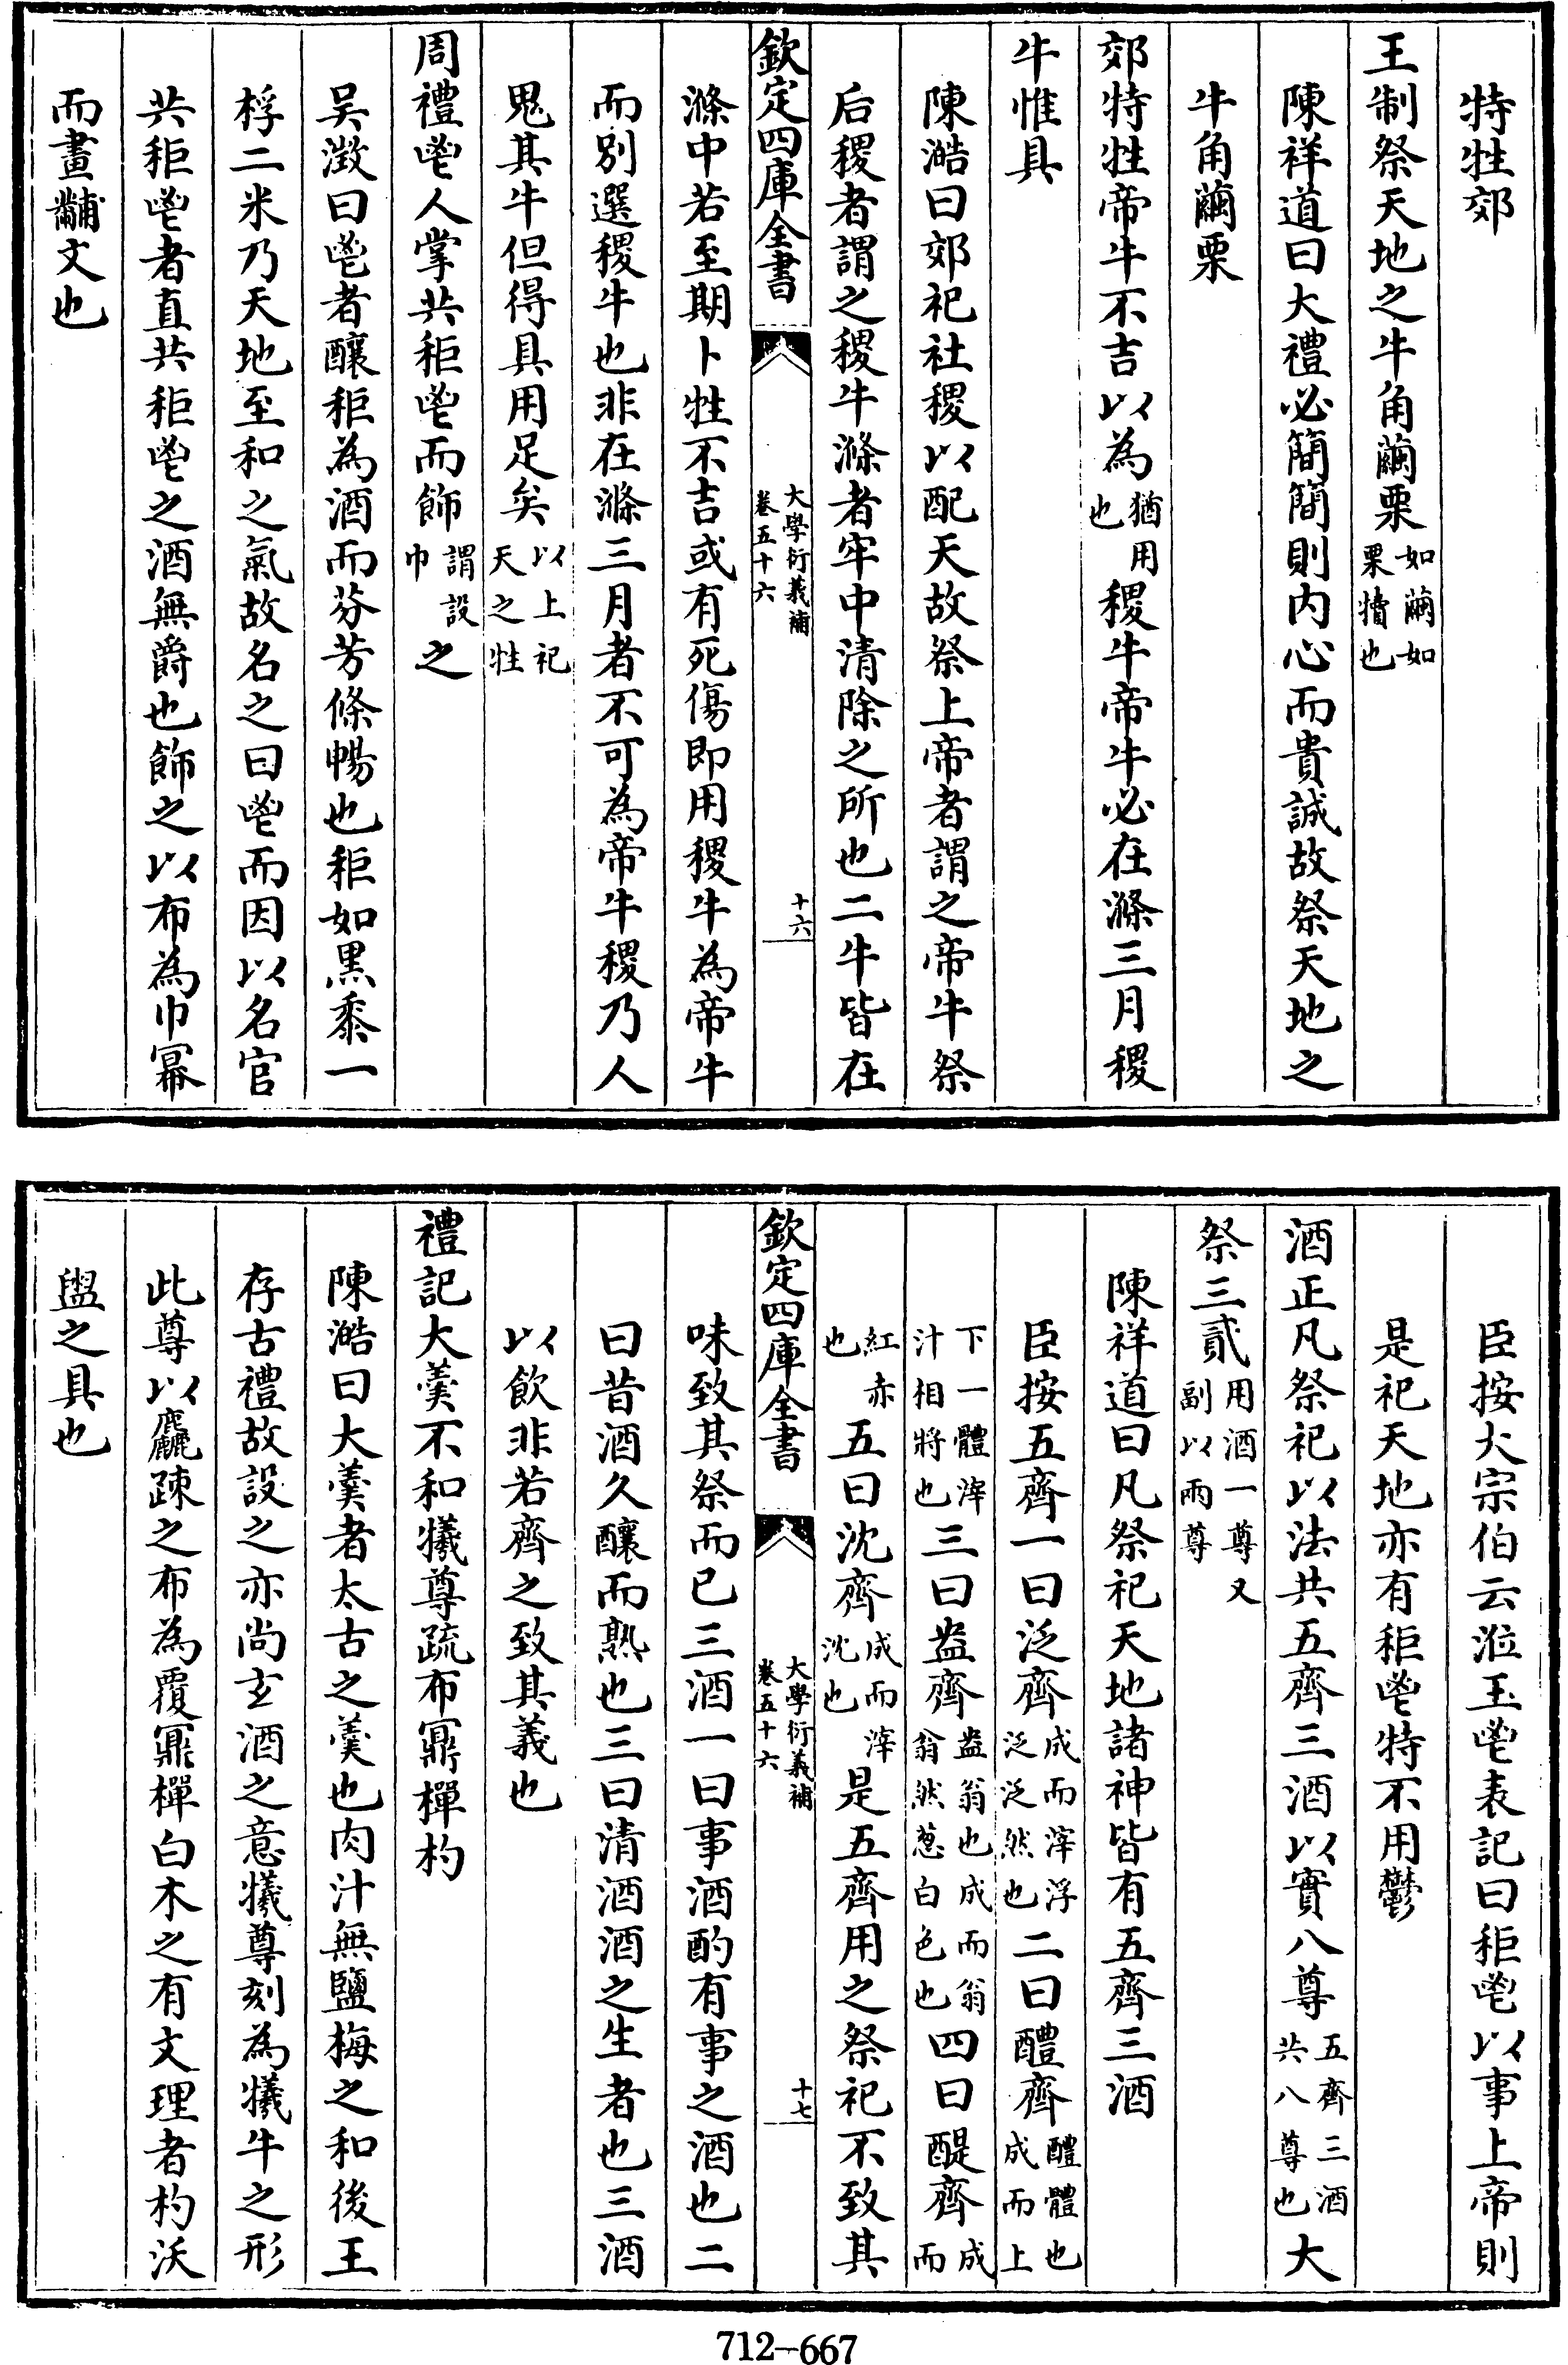 特牲郊
王制祭天地之牛角繭栗如繭如栗犢也
陳祥道曰大禮必簡簡則内心而貴誠故祭天地之
牛角繭栗
郊特牲帝牛不吉以為猶用也稷牛帝牛必在滌三月稷
牛惟具
陳澔曰郊祀社稷以配天故祭上帝者謂之帝牛祭
后稷者謂之稷牛滌者牢中清除之所也二牛皆在
欽定四庫全書 大學衍義補 卷五十六 十六
滌中若至期卜牲不吉或有死傷即用稷牛為帝牛
而别選稷牛也非在滌三月者不可為帝牛稷乃人
鬼其牛但得具用足矣以上祀天之牲
周禮鬯人掌共秬鬯而飾謂設巾之
吴澂曰鬯者釀秬為酒而芬芳條暢也秬如黒黍一
桴二米乃天地至和之氣故名之曰鬯而因以名官
共秬鬯者直共秬鬯之酒無爵也飾之以布為巾冪
而畫黼文也
臣按大宗伯云涖玉鬯表記曰秬鬯以事上帝則
是祀天地亦有秬鬯特不用鬱
酒正凡祭祀以法共五齊三酒以實八尊五齊三酒共八尊也大
祭三貳用酒一尊又副以兩尊
陳祥道曰凡祭祀天地諸神皆有五齊三酒
臣按五齊一曰泛齊成而滓浮泛泛然也二曰醴齊醴體也成而上
下一體滓汁相將也三曰盎齊盎翁也成而翁翁然葱白色也四曰醍齊成而
紅赤也五曰沈齊成而滓沈也是五齊用之祭祀不致其
欽定四庫全書 大學衍義補 卷五十六 十七
味致其祭而已三酒一曰事酒酌有事之酒也二
曰昔酒久釀而熟也三曰清酒酒之生者也三酒
以飲非若齊之致其義也
禮記大羮不和犧尊疏布鼏樿杓
陳澔曰大羮者太古之羮也肉汁無鹽梅之和後王
存古禮故設之亦尚玄酒之意犧尊刻為犧牛之形
此尊以麤疎之布為覆鼏樿白木之有文理者杓沃
盥之具也
712-667